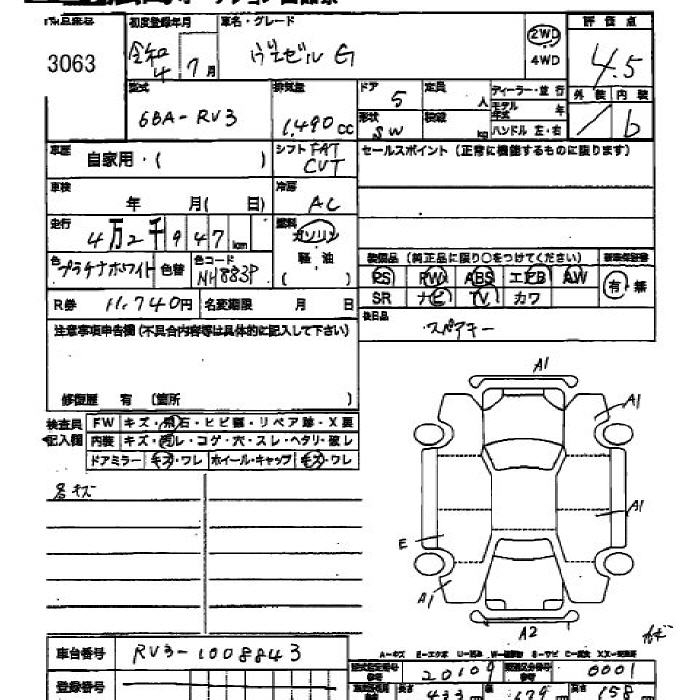 出品番号 初度登録年月 車名・グレード 2WD 評価点
3063 令和 4 7月 ヴェゼル G 4WD 4.5
型式 排気量 ドア 定員 ディーラー・並行 外装 内装
6BA-RV3 1,490 cc 5 人 モデル年式 年 / b
形状 SW 積載 kg ハンドル 左・右
車歴 自家用・( ) シフト FAT CVT セールスポイント (正常に機能するものに限ります)
車検 年 月 ( 日) 冷房 AC
走行 4万2千947km 燃料 ガソリン
色 プラチナホワイト 色替 色コード NH883P 軽油 ( )
装備品 (純正品に限り○をつけてください) 新車保証書
PS PW ABS エアB AW 有・無
SR ナビ TV カワ
R券 11,740円 名変期限 月 日 後日品
スペアキー
注意事項申告欄 (不具合内容等は具体的に記入して下さい)
修復歴 有 (箇所 )
検査員記入欄 FW キズ・飛石・ヒビ割・リペア跡・X要
内装 キズ・汚レ・コゲ・穴・スレ・ヘタリ・破レ
ドアミラー キズ・ワレ ホイール・キャップ キズ・ワレ
各キズ
A1
A1
A1
E
A1
A2
車台番号 RV3-1008843
登録番号
型式指定番号 20109 類別区分番号 0001
長さ 433 679 高さ 158